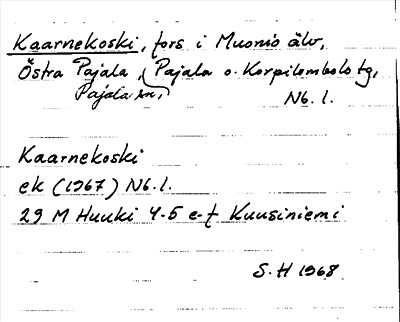 Kaarnekoski, fors i Muonio älv,
Östra Pajala, Pajala o. Korpilombolo tg,
Pajala sn, Nb. l.
Kaarnekoski
ek (1967) Nb. l.
29 M Huuki 4-5 e-f Kuusiniemi
S. H 1968